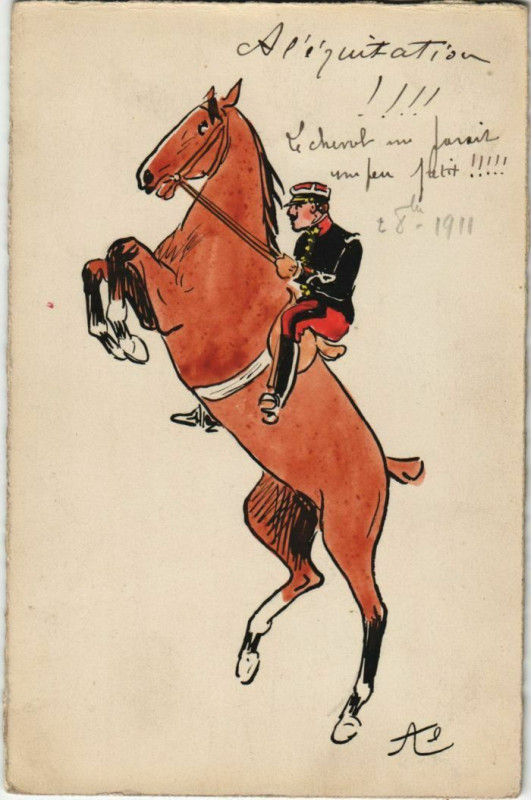 A l'équitation
!!!!
Le cheval me parait
un peu petit !!!!!
8bre 1911